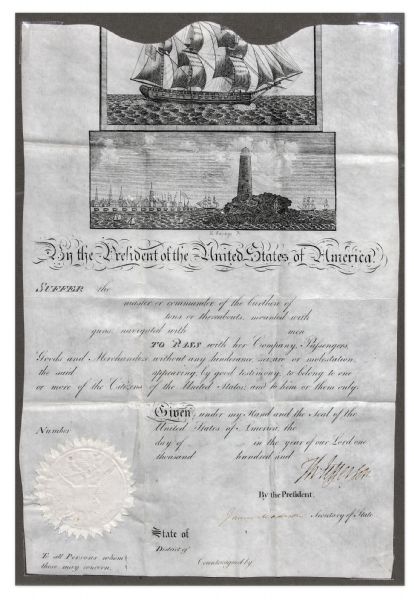 By the President of the United States of America,
SUFFER the
master or commander of the burthen of
tons or thereabouts, mounted with
guns, navigated with men
TO PASS with her Company, Passengers,
Goods and Merchandize without any hinderance seizure or molestation,
the said appearing by good testimony, to belong to one
or more of the Citizens of the United States; and to him or them only.
Given, under my Hand and the Seal of the
United States of America, the
Number
day of in the year of our Lord one
thousand hundred and
Th: Jefferson
By the President
James Madison Secretary of State
State of
District of
To all Persons whom
these may concern.
Countersigned by